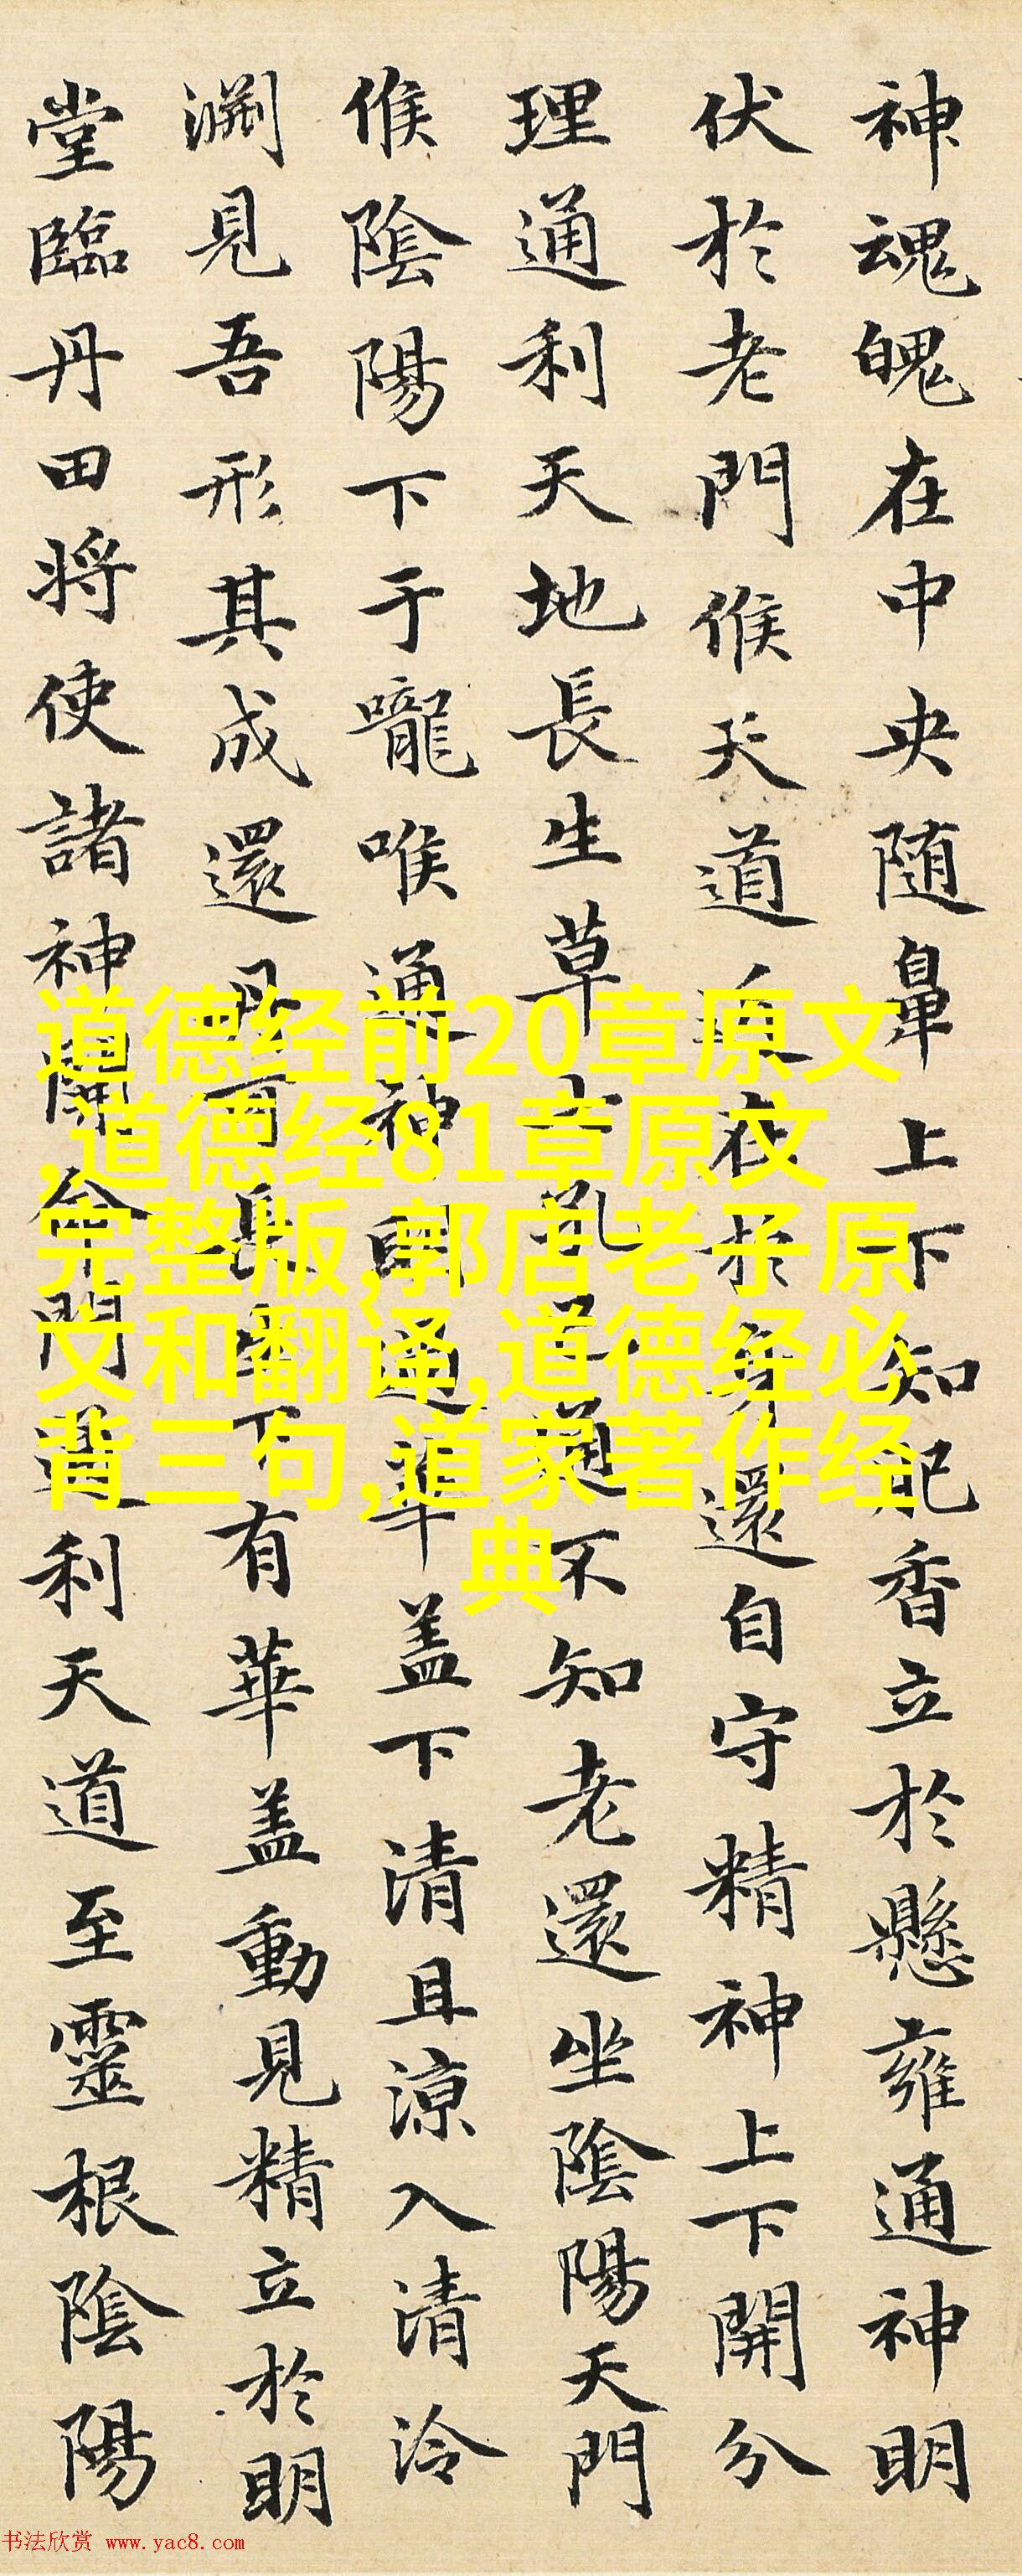 神魂魄在中央随鼻上下知肥香立於懸雍通神明
伏於老門候天道近在於身還自守精神上下開分
理通利天地長生草七孔已通不知老還坐陰陽天門
候陰陽下于嚨喉通神明過華盖下清且涼入清泠
渊見吾形其成還丹可長生下有華盖動見精立於明
堂臨丹田将使諸神開命門通利天道至靈根陰陽
道德经前20章原文
,道德经81章原文
完整版,郭店老子原
文和翻译,道德经必
背三句,道家著作经
典
书法欣赏 www.yac8.com